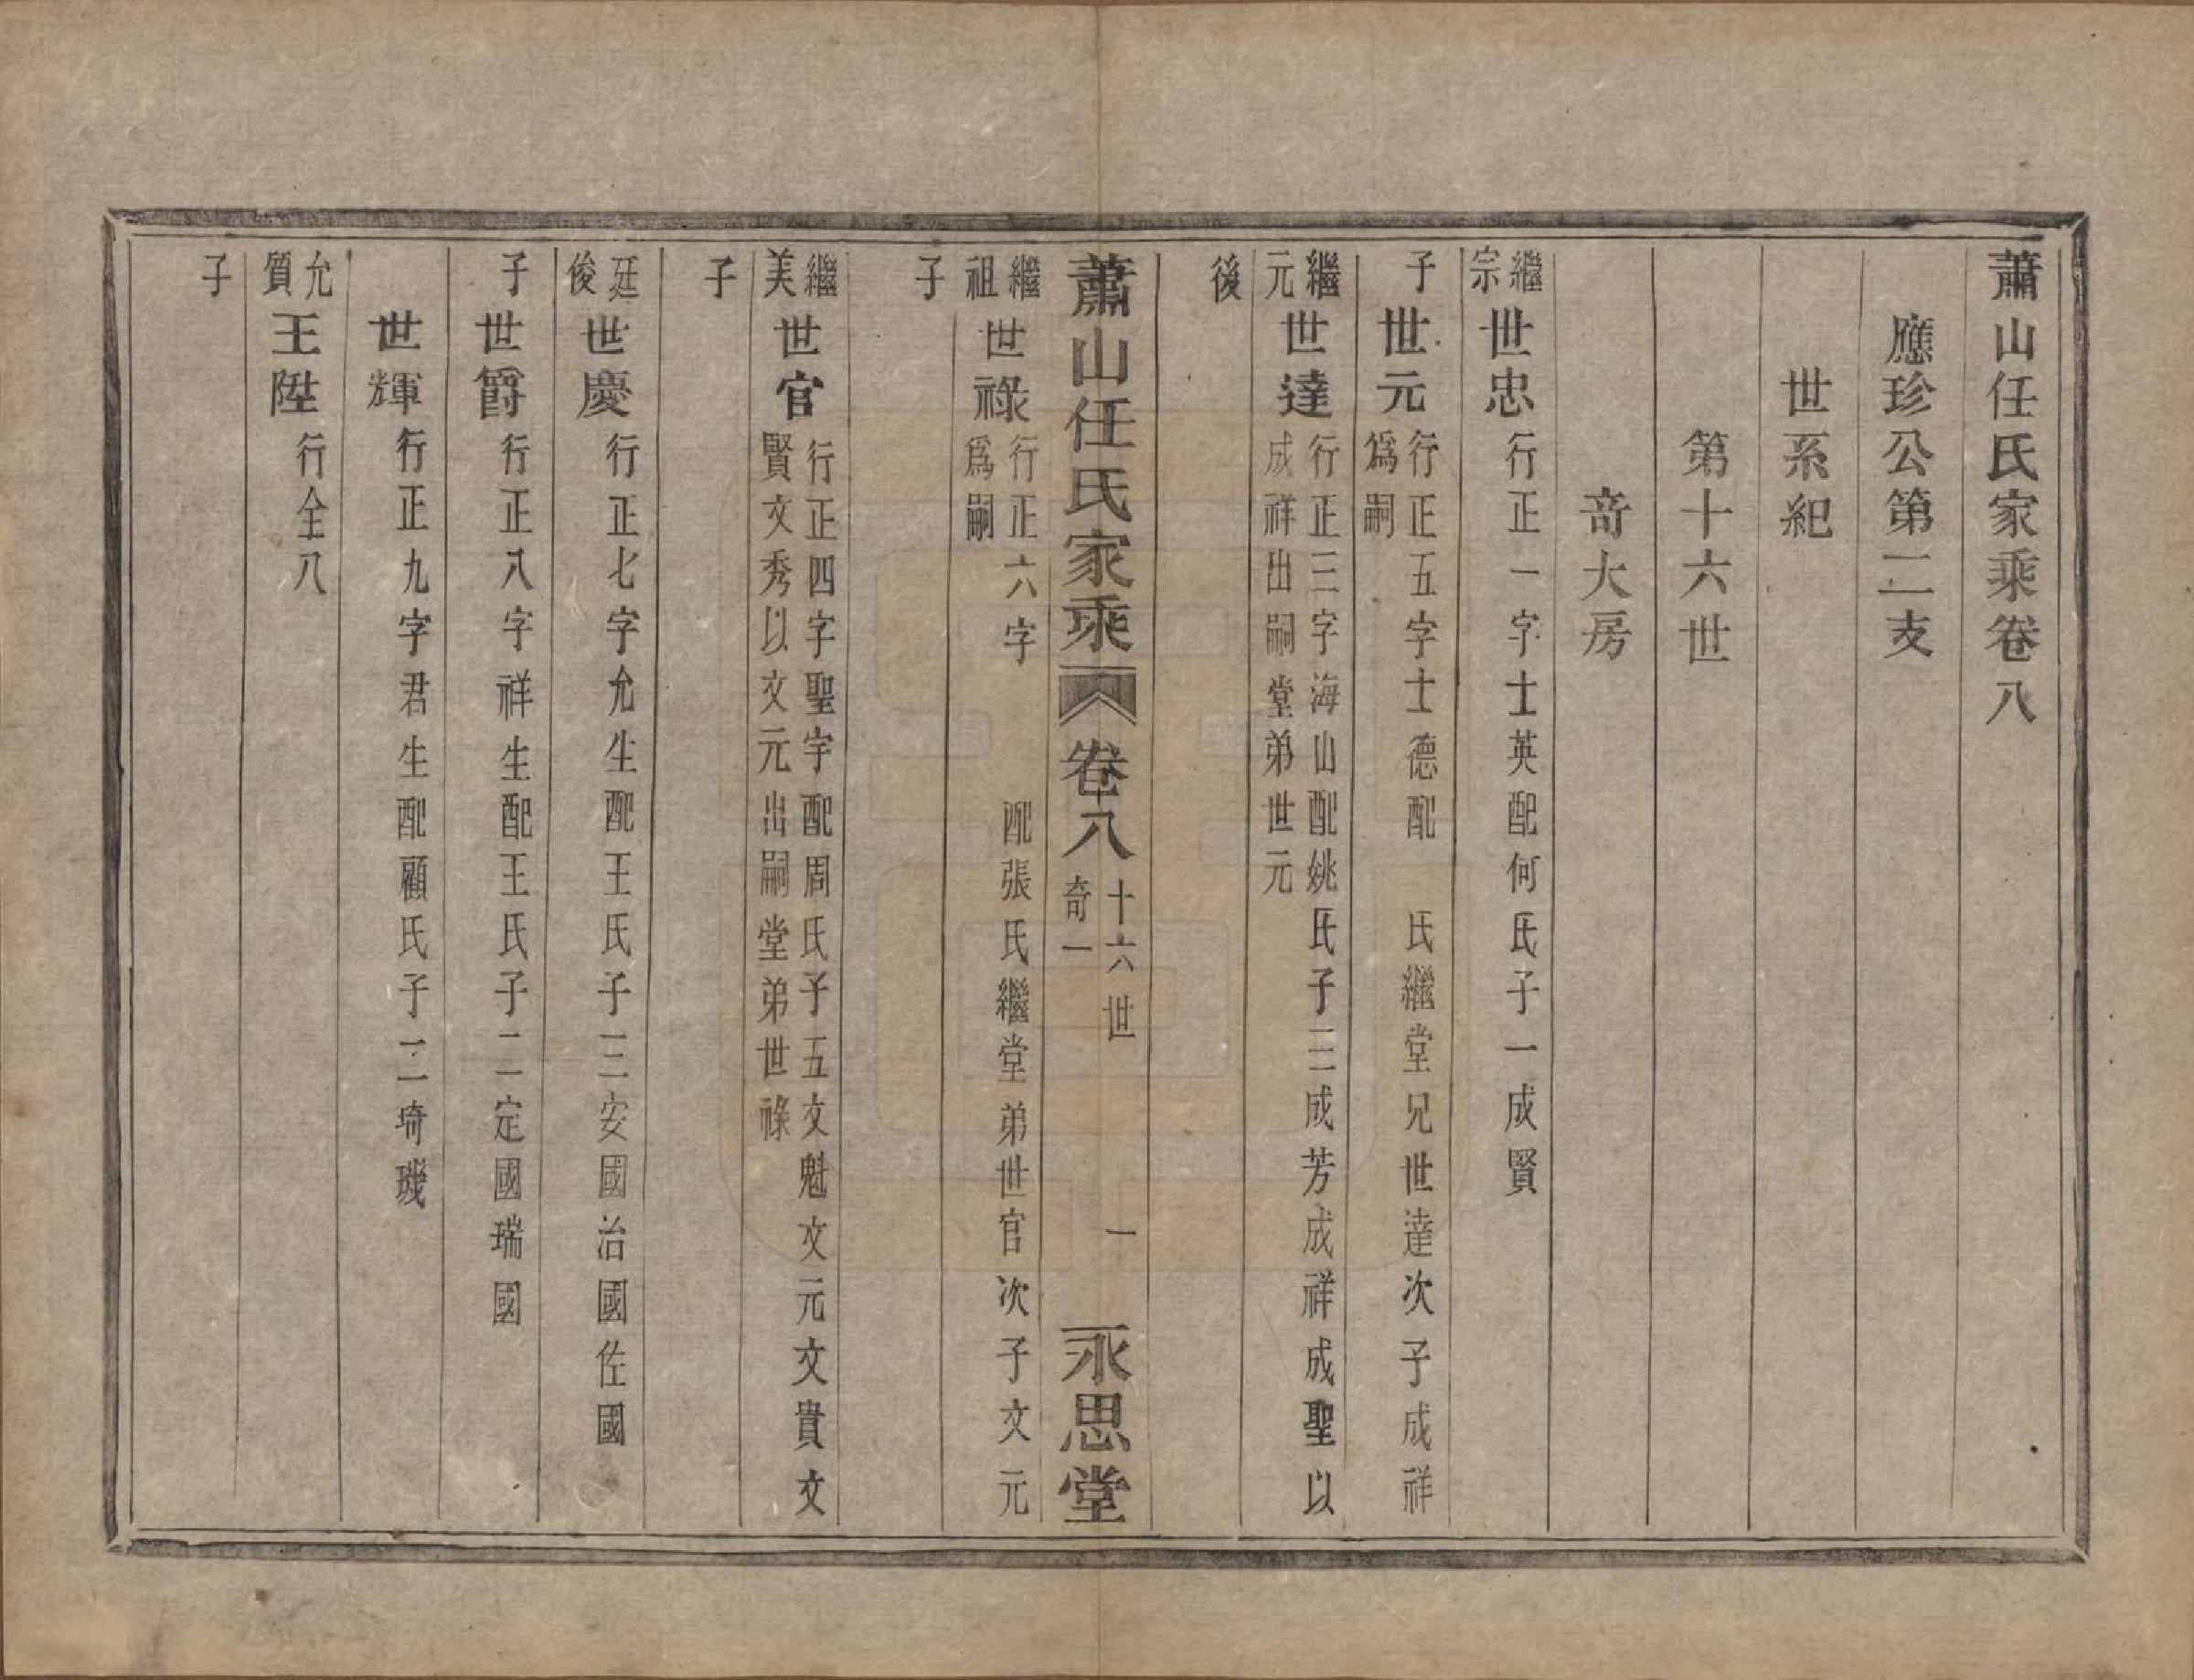 蕭山任氏家乘卷八
應珍公第二支
世系紀
第十六世
奇大房
繼宗
世忠
行正一字士英配何氏子一成賢
子
世元
行正五字士德配　氏繼堂兄世達次子成祥
爲嗣
繼元
世達
行正三字海山配姚氏子三成芳成祥成聖以
成祥出嗣堂弟世元
後
蕭山任氏家乘
卷八
十六世
奇一
一
永思堂
繼祖
世祿
行正六字　　配張氏繼堂弟世官次子文元
爲嗣
子
繼美
世官
行正四字聖宇配周氏子五文魁文元文貴文
賢文秀以文元出嗣堂弟世祿
子
廷俊
世慶
行正七字允生配王氏子三安國治國佐國
子
世爵
行正八字祥生配王氏子二定國瑞國
世輝
行正九字君生配顧氏子二琦璣
允質
王陞
行全八
子